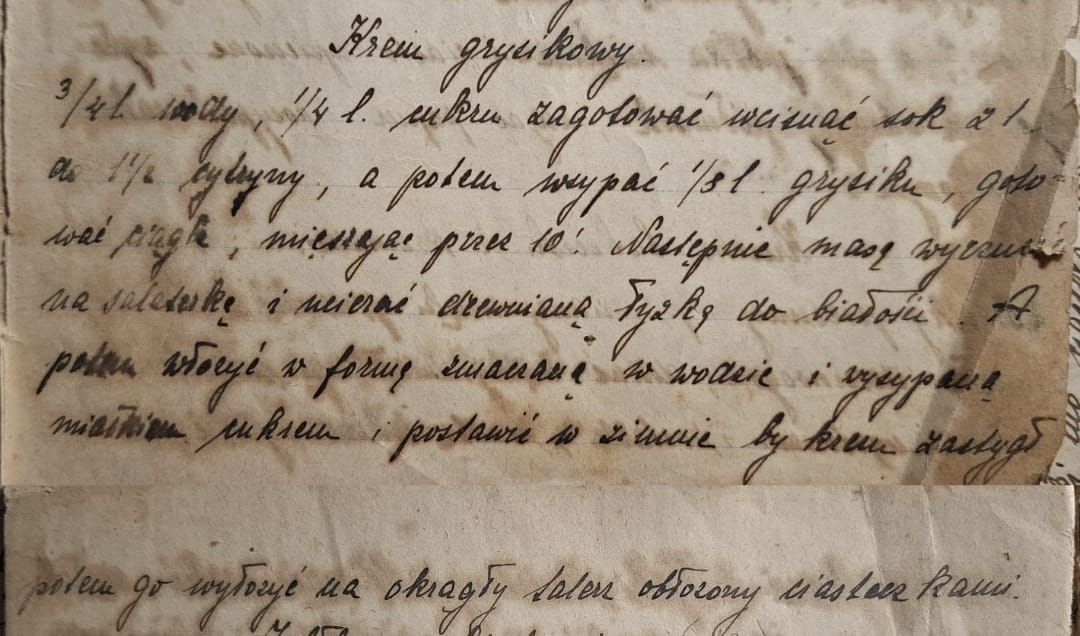 Krem grysikowy.
3/4 l. wody, 1/4 l. cukru zagotować wcisnąć sok z 1
do 1 1/2 cytryny, a potem wsypać 1/8 l. grysiku, goto-
wać ciągle, mięszając przez 10'. Następnie masę wyrzucić
na salaterkę i ucierać drewnianą łyżką do białości. A
potem włożyć w formę zmaczaną w wodzie i wysypaną
miałkiem cukrem i postawić w zimnie by krem zastygł
potem go wyłożyć na okrągły talerz obłożony ciasteczkami.